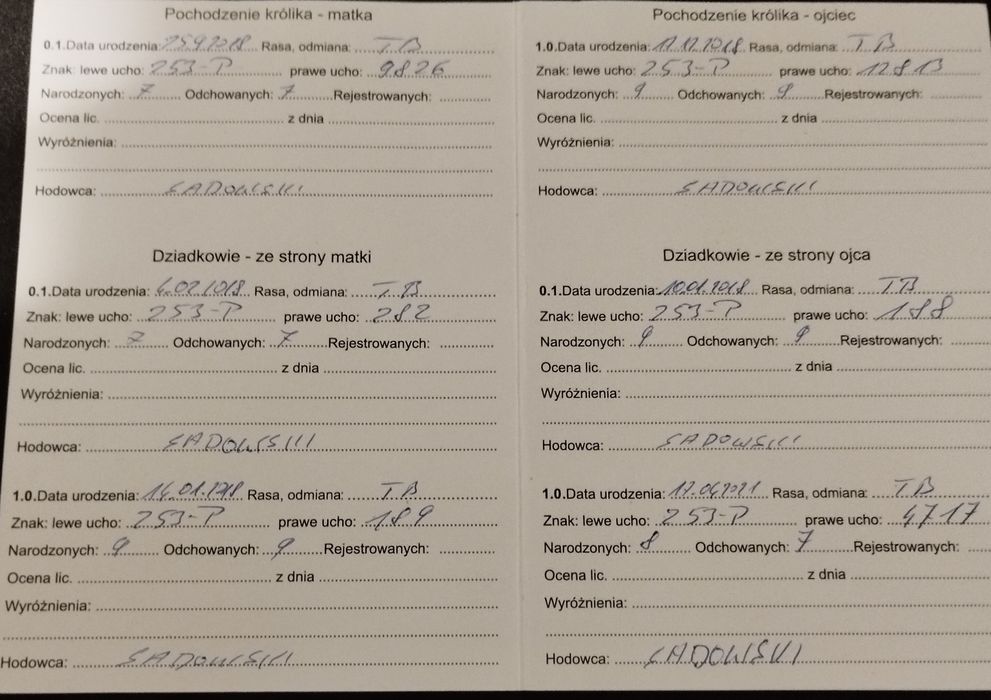 Pochodzenie królika - matka
0.1.Data urodzenia: 25.9.2018 Rasa, odmiana: TB
Znak: lewe ucho: 253-P prawe ucho: 9826
Narodzonych: 7 Odchowanych: 7 Rejestrowanych:
Ocena lic. z dnia
Wyróżnienia:
Hodowca: SADOWSKI
Dziadkowie - ze strony matki
0.1.Data urodzenia: 6.02.2018 Rasa, odmiana: TB
Znak: lewe ucho: 253-P prawe ucho: 282
Narodzonych: 7 Odchowanych: 7 Rejestrowanych:
Ocena lic. z dnia
Wyróżnienia:
Hodowca: SADOWSKI
1.0.Data urodzenia: Rasa, odmiana: TB
Znak: lewe ucho: 253-P prawe ucho: 189
Narodzonych: 9 Odchowanych: 9 Rejestrowanych:
Ocena lic. z dnia
Wyróżnienia:
Hodowca: SADOWSKI
Pochodzenie królika - ojciec
1.0.Data urodzenia: Rasa, odmiana: TB
Znak: lewe ucho: 253-P prawe ucho: 12813
Narodzonych: 9 Odchowanych: 9 Rejestrowanych:
Ocena lic. z dnia
Wyróżnienia:
Hodowca: SADOWSKI
Dziadkowie - ze strony ojca
0.1.Data urodzenia: 10.01.2018 Rasa, odmiana: TB
Znak: lewe ucho: 253-P prawe ucho: 188
Narodzonych: 9 Odchowanych: 9 Rejestrowanych:
Ocena lic. z dnia
Wyróżnienia:
Hodowca: SADOWSKI
1.0.Data urodzenia: 17.04.2021 Rasa, odmiana: TB
Znak: lewe ucho: 253-P prawe ucho: 4717
Narodzonych: 8 Odchowanych: 7 Rejestrowanych:
Ocena lic. z dnia
Wyróżnienia:
Hodowca: SADOWSKI